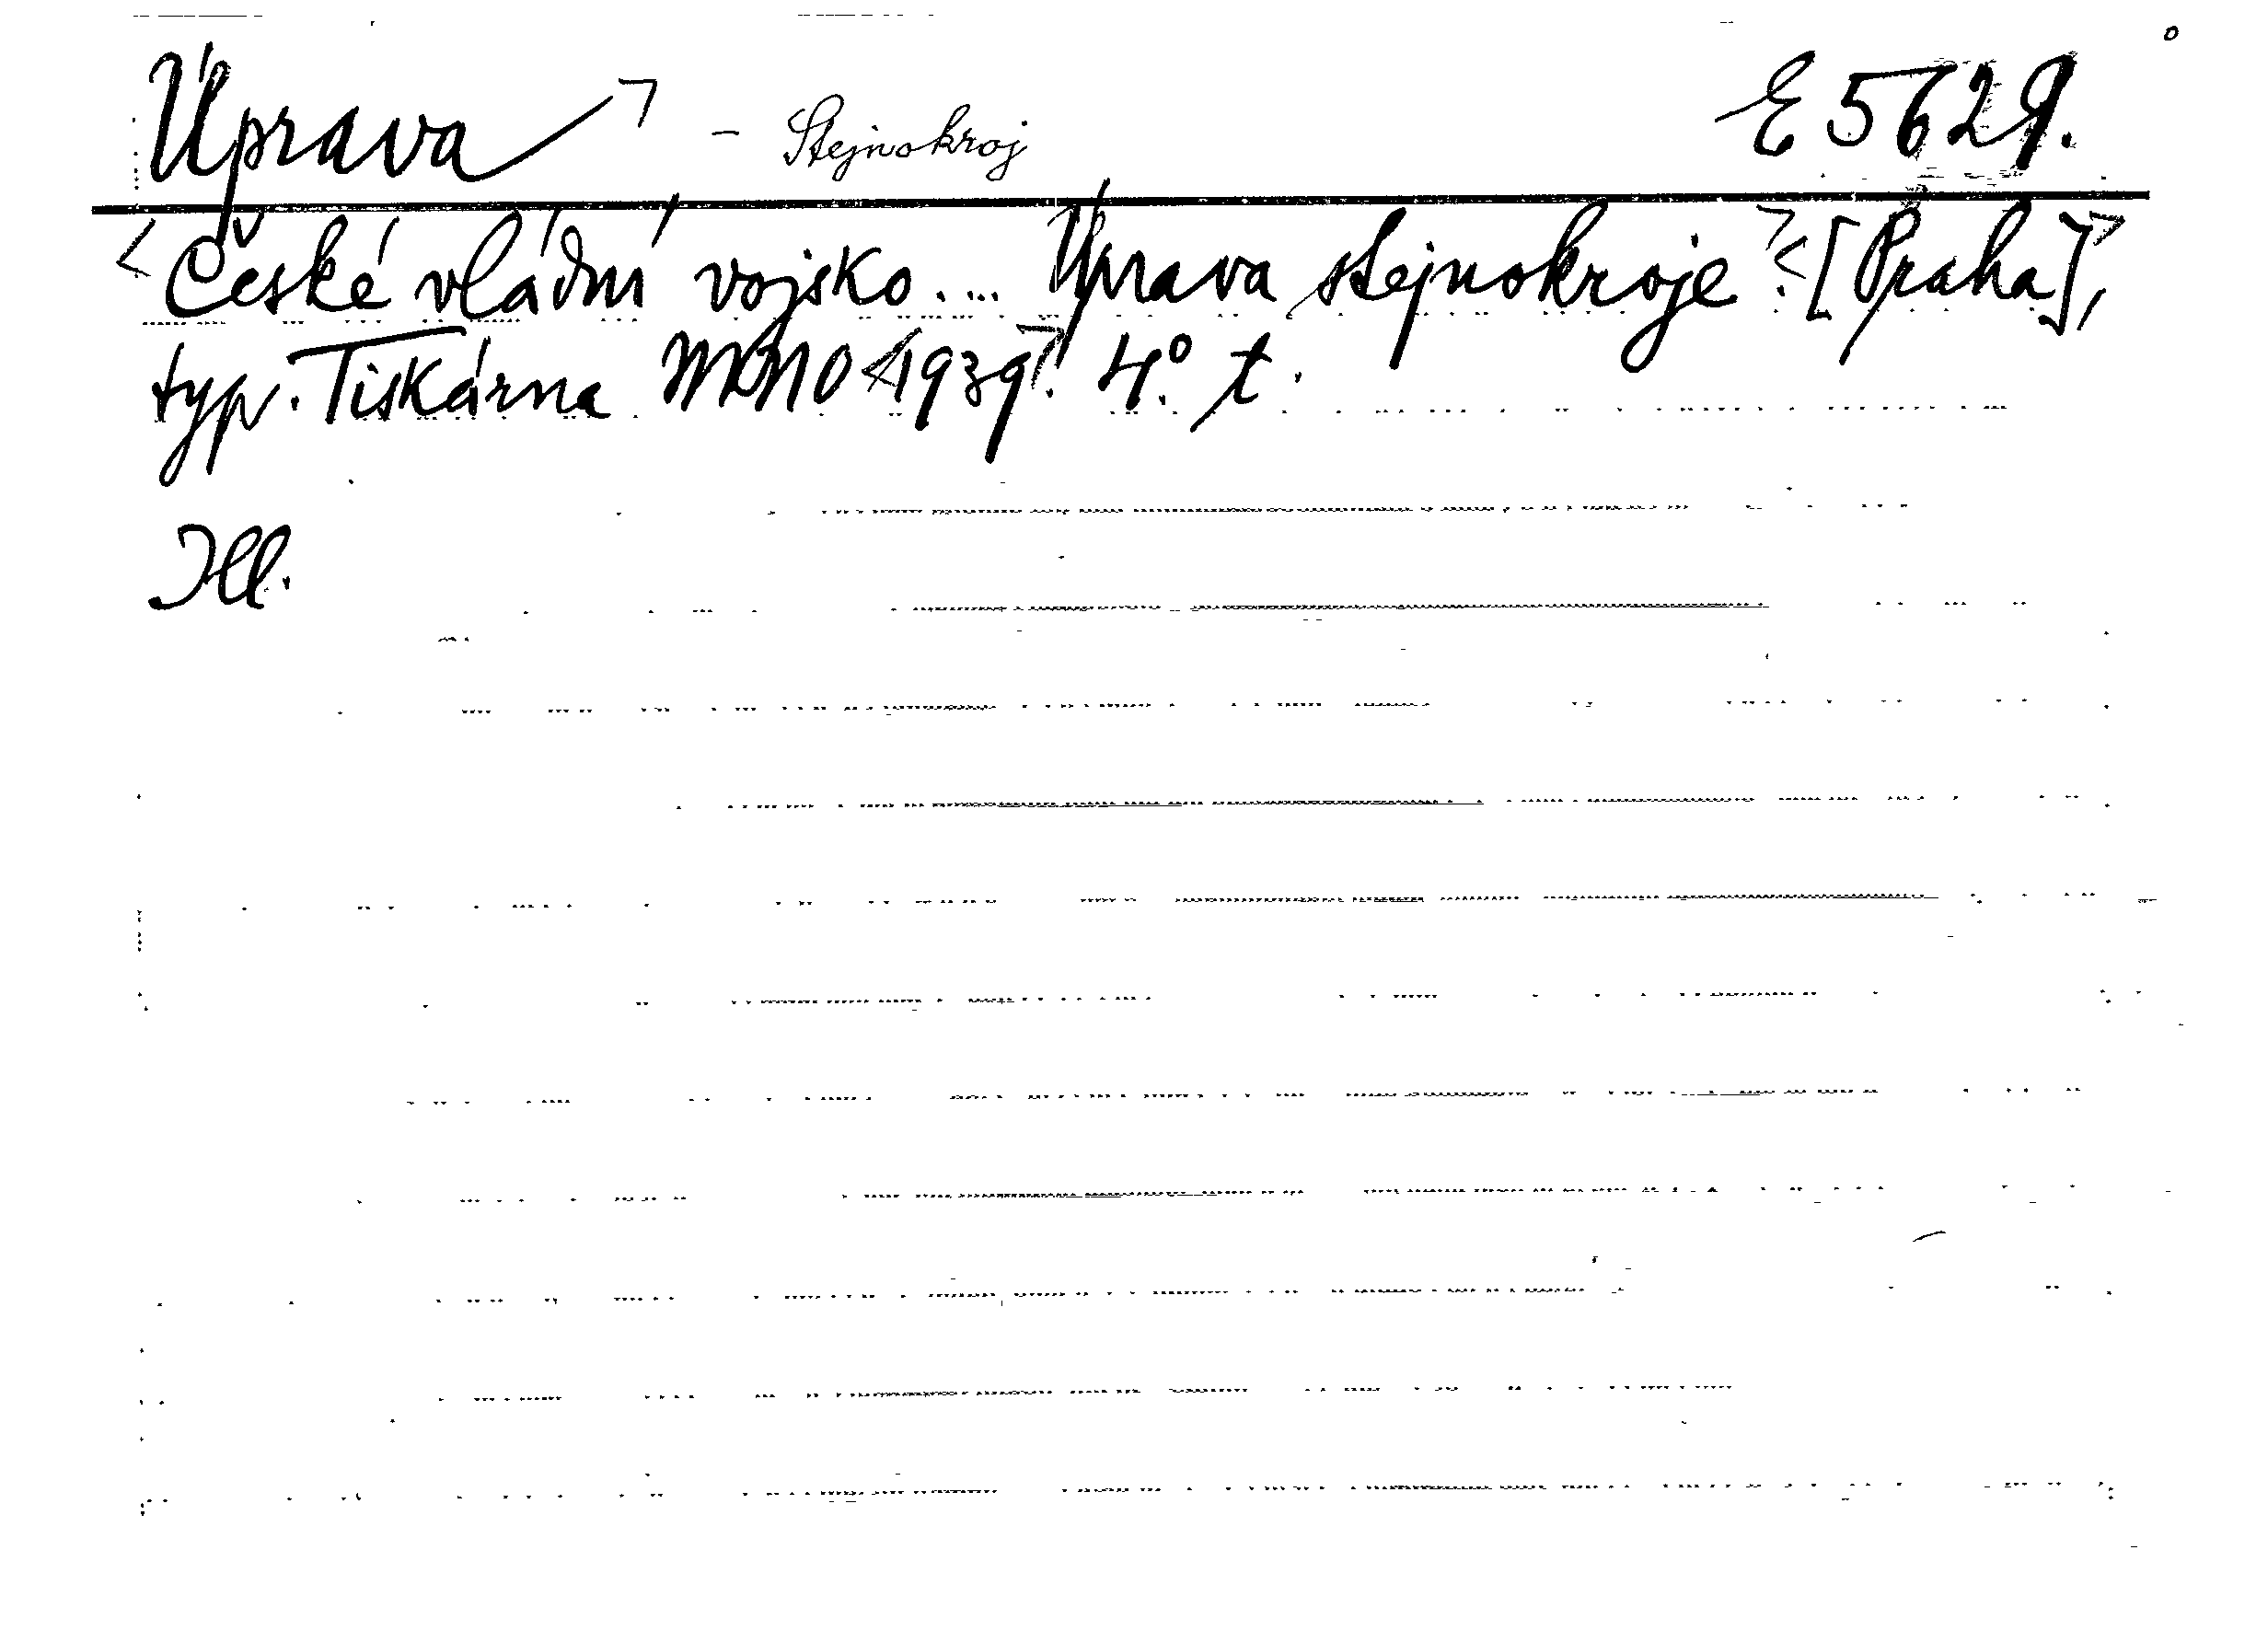 Úprava - Stejnokroj E 5629.
<České vládní vojsko.... Úprava stejnokroje>.<[Praha]>,
typ. Tiskárna MNO <1939>. 4°. t.
Ill.